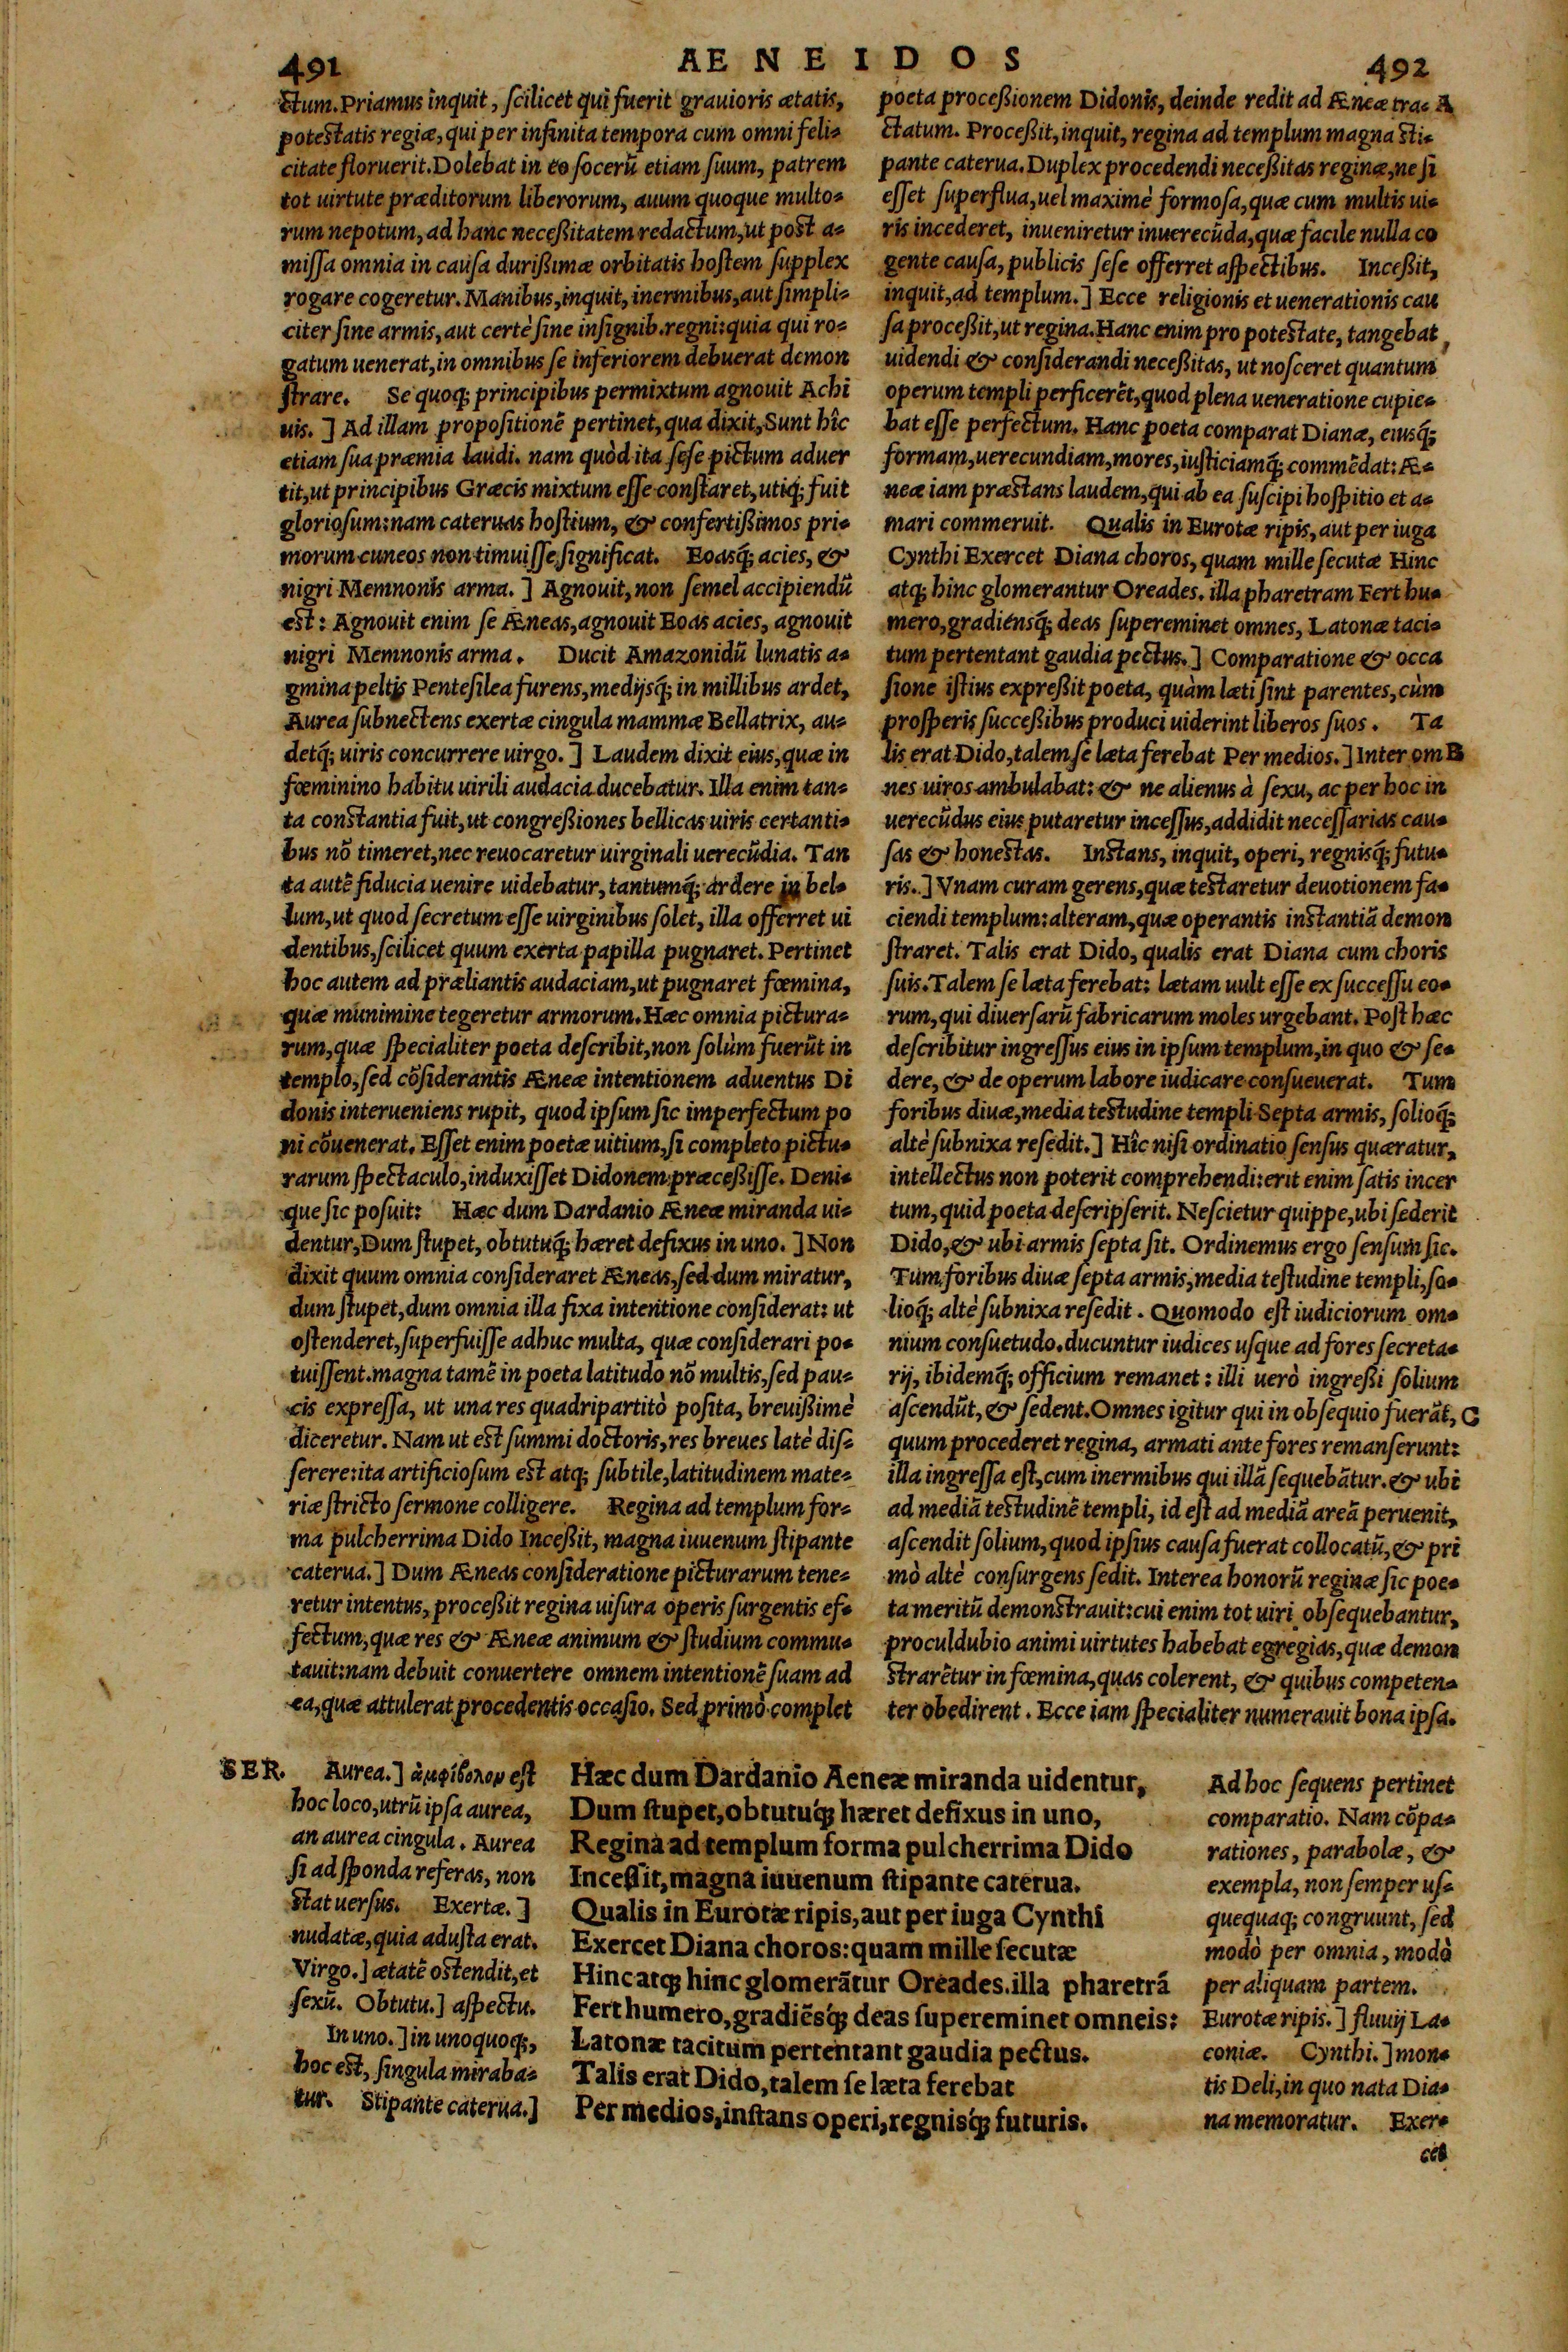 491
AENEIDOS
492
ctum. Priamus inquit, ſcilicet qui fuerit grauioris ætatis,
poteſtatis regiæ, qui per infinita tempora cum omni feli-
citate floruerit. Dolebat in eo ſocerũ etiam ſuum, patrem
tot uirtute præditorum liberorum, auum quoque multo-
rum nepotum, ad hanc neceßitatem redactum, ut poſt a-
miſſa omnia in cauſa durißimæ orbitatis hoſtem ſupplex
rogare cogeretur. Manibus, inquit, inermibus, aut ſimpli-
citer ſine armis, aut certè ſine inſignib. regni: quia qui ro-
gatum uenerat, in omnibus ſe inferiorem debuerat demon
ſtrare. Se quoq; principibus permixtum agnouit Achi
uis. ] Ad illam propoſitionẽ pertinet, qua dixit, Sunt hîc
etiam ſua præmia laudi. nam quòd ita ſeſe pictum aduer
tit, ut principibus Græcis mixtum eſſe conſtaret, utiq; fuit
glorioſum: nam cateruas hoſtium, & confertißimos pri-
morum cuneos non timuiſſe ſignificat. Eoasq́; acies, &
nigri Memnonis arma. ] Agnouit, non ſemel accipiendũ
eſt: Agnouit enim ſe Æneas, agnouit Eoas acies, agnouit
nigri Memnonis arma. Ducit Amazonidũ lunatis a-
gmina peltis Penteſilea furens, medijsq́; in millibus ardet,
Aurea ſubnectens exertæ cingula mammæ Bellatrix, au-
detq́; uiris concurrere uirgo. ] Laudem dixit eius, quæ in
fœminino habitu uirili audacia ducebatur. Illa enim tan-
ta conſtantia fuit, ut congreßiones bellicas uiris certanti-
bus nõ timeret, nec reuocaretur uirginali uerecũdia. Tan
ta autẽ fiducia uenire uidebatur, tantumq́; ardere in bel-
lum, ut quod ſecretum eſſe uirginibus ſolet, illa offerret ui
dentibus, ſcilicet quum exerta papilla pugnaret. Pertinet
hoc autem ad præliantis audaciam, ut pugnaret fœmina,
quæ munimine tegeretur armorum. Hæc omnia pictura-
rum, quæ ſpecialiter poeta deſcribit, non ſolùm fuerũt in
templo, ſed cõſiderantis Æneæ intentionem aduentus Di
donis interueniens rupit, quod ipſum ſic imperfectum po
ni cõuenerat. Eſſet enim poetæ uitium, ſi completo pictu-
rarum ſpectaculo, induxiſſet Didonem præceßiſſe. Deni-
que ſic poſuit: Hæc dum Dardanio Æneæ miranda ui-
dentur, Dum ſtupet, obtutuq́; hæret defixus in uno. ] Non
dixit quum omnia conſideraret Æneas, ſed dum miratur,
dum ſtupet, dum omnia illa fixa intentione conſiderat: ut
oſtenderet, ſuperfuiſſe adhuc multa, quæ conſiderari po-
tuiſſent. magna tamẽ in poeta latitudo nõ multis, ſed pau-
cis expreſſa, ut una res quadripartitò poſita, breuißimè
diceretur. Nam ut eſt ſummi doctoris, res breues latè diſ-
ſerere: ita artificioſum eſt atq; ſubtile, latitudinem mate-
riæ ſtricto ſermone colligere. Regina ad templum for-
ma pulcherrima Dido Inceßit, magna iuuenum ſtipante
caterua. ] Dum Æneas conſideratione picturarum tene-
retur intentus, proceßit regina uiſura operis ſurgentis ef-
fectum, quæ res & Æneæ animum & ſtudium commu-
tauit: nam debuit conuertere omnem intentionẽ ſuam ad
ea, quæ attulerat procedentis occaſio. Sed primò complet
poeta proceßionem Didonis, deinde redit ad Æneæ tra- A
ctatum. Proceßit, inquit, regina ad templum magna ſti-
pante caterua. Duplex procedendi neceßitas reginæ, ne ſi
eſſet ſuperflua, uel maximè formoſa, quæ cum multis ui-
ris incederet, inueniretur inuerecũda, quæ facile nulla co
gente cauſa, publicis ſeſe offerret aſpectibus. Inceßit,
inquit, ad templum. ] Ecce religionis et uenerationis cau
ſa proceßit, ut regina. Hanc enim pro poteſtate, tangebat
uidendi & conſiderandi neceßitas, ut noſceret quantum
operum templi perficerẽt, quod plena ueneratione cupie-
bat eſſe perfectum. Hanc poeta comparat Dianæ, eiusq́;
formam, uerecundiam, mores, iuſticiamq́; commẽdat: Æ-
neæ iam præſtans laudem, qui ab ea ſuſcipi hoſpitio et a-
mari commeruit. Qualis in Eurotæ ripis, aut per iuga
Cynthi Exercet Diana choros, quam mille ſecutæ Hinc
atq; hinc glomerantur Oreades. illa pharetram Fert hu-
mero, gradiensq́; deas ſupereminet omnes, Latonæ taci-
tum pertentant gaudia pectus. ] Comparatione & occa
ſione iſtius expreßit poeta, quàm læti ſint parentes, cùm
proſperis ſucceßibus produci uiderint liberos ſuos. Ta
lis erat Dido, talem ſe læta ferebat Per medios. ] Inter om B
nes uiros ambulabat: & ne alienus à ſexu, ac per hoc in
uerecũdus eius putaretur inceſſus, addidit neceſſarias cau-
ſas & honeſtas. Inſtans, inquit, operi, regnisq́; futu-
ris. ] Vnam curam gerens, quæ teſtaretur deuotionem fa-
ciendi templum: alteram, quæ operantis inſtantiã demon
ſtraret. Talis erat Dido, qualis erat Diana cum choris
ſuis. Talem ſe læta ferebat: lætam uult eſſe ex ſucceſſu eo-
rum, qui diuerſarũ fabricarum moles urgebant. Poſt hæc
deſcribitur ingreſſus eius in ipſum templum, in quo & ſe-
dere, & de operum labore iudicare conſueuerat. Tum
foribus diuæ, media teſtudine templi Septa armis, ſolioq́;
altè ſubnixa reſedit. ] Hîc niſi ordinatio ſenſus quæratur,
intellectus non poterit comprehendi: erit enim ſatis incer
tum, quid poeta deſcripſerit. Neſcietur quippe, ubi ſederit
Dido, & ubi armis ſepta ſit. Ordinemus ergo ſenſum ſic.
Tum foribus diuæ ſepta armis, media teſtudine templi, ſo-
lioq́; altè ſubnixa reſedit. Quomodo eſt iudiciorum om-
nium conſuetudo. ducuntur iudices uſque ad fores ſecreta-
rij, ibidemq́; officium remanet: illi uerò ingreßi ſolium
aſcendũt, & ſedent. Omnes igitur qui in obſequio fuerãt, C
quum procederet regina, armati ante fores remanſerunt:
illa ingreſſa eſt, cum inermibus qui illã ſequebãtur. & ubi
ad mediã teſtudinẽ templi, id eſt ad mediã areã peruenit,
aſcendit ſolium, quod ipſius cauſa fuerat collocatũ, & pri
mò altè conſurgens ſedit. Interea honorũ reginæ ſic poe-
ta meritũ demonſtrauit: cui enim tot uiri obſequebantur,
proculdubio animi uirtutes habebat egregias, quæ demon
ſtrarẽtur in fœmina, quas colerent, & quibus competen-
ter obedirent. Ecce iam ſpecialiter numerauit bona ipſa.
SER. Aurea. ] ἀμφίβολον eſt
hoc loco, utrũ ipſa aurea,
an aurea cingula. Aurea
ſi ad ſponda referas, non
ſtat uerſus. Exertæ. ]
nudatæ, quia aduſta erat.
Virgo. ] ætatẽ oſtendit, et
ſexũ. Obtutu. ] aſpectu.
In uno. ] in unoquoq;,
hoc eſt, ſingula miraba-
tur. Stipante caterua. ]
Hæc dum Dardanio Aeneæ miranda uidentur,
Dum ſtupet, obtutuq́; hæret defixus in uno,
Regina ad templum forma pulcherrima Dido
Inceſſit, magna iuuenum ſtipante caterua.
Qualis in Eurotæ ripis, aut per iuga Cynthi
Exercet Diana choros: quam mille ſecutæ
Hinc atq; hinc glomerãtur Oreades. illa pharetrã
Fert humero, gradiẽsq́; deas ſupereminet omneis:
Latonæ tacitum pertentant gaudia pectus.
Talis erat Dido, talem ſe læta ferebat
Per medios, inſtans operi, regnisq́; futuris.
Ad hoc ſequens pertinet
comparatio. Nam cõpa-
rationes, parabolæ, &
exempla, non ſemper uſ-
quequaq; congruunt, ſed
modò per omnia, modò
per aliquam partem.
Eurotæ ripis. ] fluuij La-
coniæ. Cynthi. ] mon-
tis Deli, in quo nata Dia-
na memoratur. Exer-
cet